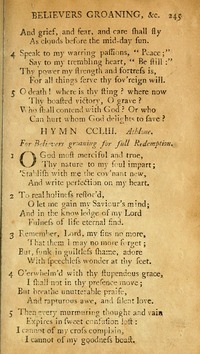 BELIEVERS GROANING, &c. 245
And grief, and fear, and care shall fly
As clouds before the mid-day sun.
4 Speak to my warring passions, "Peace;"
Say to my trembling heart, "Be still:"
Thy power my strength and fortress is,
For all things serve thy sov'reign will.
5 O death! where is thy sting? where now
Thy boasted victory, O grave?
Who shall contend with God? Or who
Can hurt whom God delights to save?
HYMN CCLIII.
For Believers groaning for full Redemption.
1 O God most merciful and true,
Thy nature to my soul impart;
'Stablish with me the cov'nant new,
And write perfection on my heart.
2 To real holiness restor'd,
O let me gain my Saviour's mind;
And in the knowledge of my Lord
Fulness of life eternal find.
3 Remember, Lord, my sins no more,
That them I may no more forget;
But, sunk in guiltless shame, adore
With speechless wonder at thy feet.
4 O'erwhelm'd with thy stupendous grace,
I shall not in thy presence move;
But breathe unutterable praise,
And rapturous awe, and silent love.
5 Then every murmuring thought and vain
Expires in sweet confusion lost:
I cannot of my cross complain,
I cannot of my goodness boast.